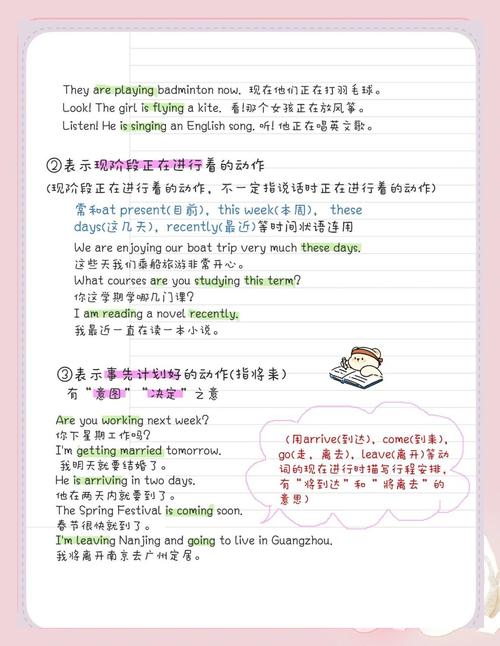 They are playing badminton now. 现在他们正在打羽毛球。
Look! The girl is flying a kite. 看!那个女孩正在放风筝。
Listen! He is singing an English song. 听! 他正在唱英文歌。
②表示现阶段正在进行着的动作
(现阶段正在进行着的动作，不一定指说话时正在进行着的动作)
常和at present(目前)，this week(本周)， these
days(这几天)，recently(最近)等时间状语连用
We are enjoying our boat trip very much these days.
这些天我们乘船旅游非常开心。
What courses are you studying this term?
你这学期学哪几门课?
I am reading a novel recently.
我最近一直在读一本小说。
③表示事先计划好的动作(指将来)
有“意图”“决定”之意
Are you working next week?
你下星期工作吗?
I'm getting married tomorrow.
我明天就要结婚了。
He is arriving in two days.
他在两天内就要到了。
The Spring Festival is coming soon.
春节很快就到了。
I'm leaving Nanjing and going to live in Guangzhou.
我将离开南京去广州定居。
（用arrive(到达)，come(到来)，
go(走，离去)，leave(离开)等动
词的现在进行时描写行程安排，
有“将到达”和“将离去”的
意思）